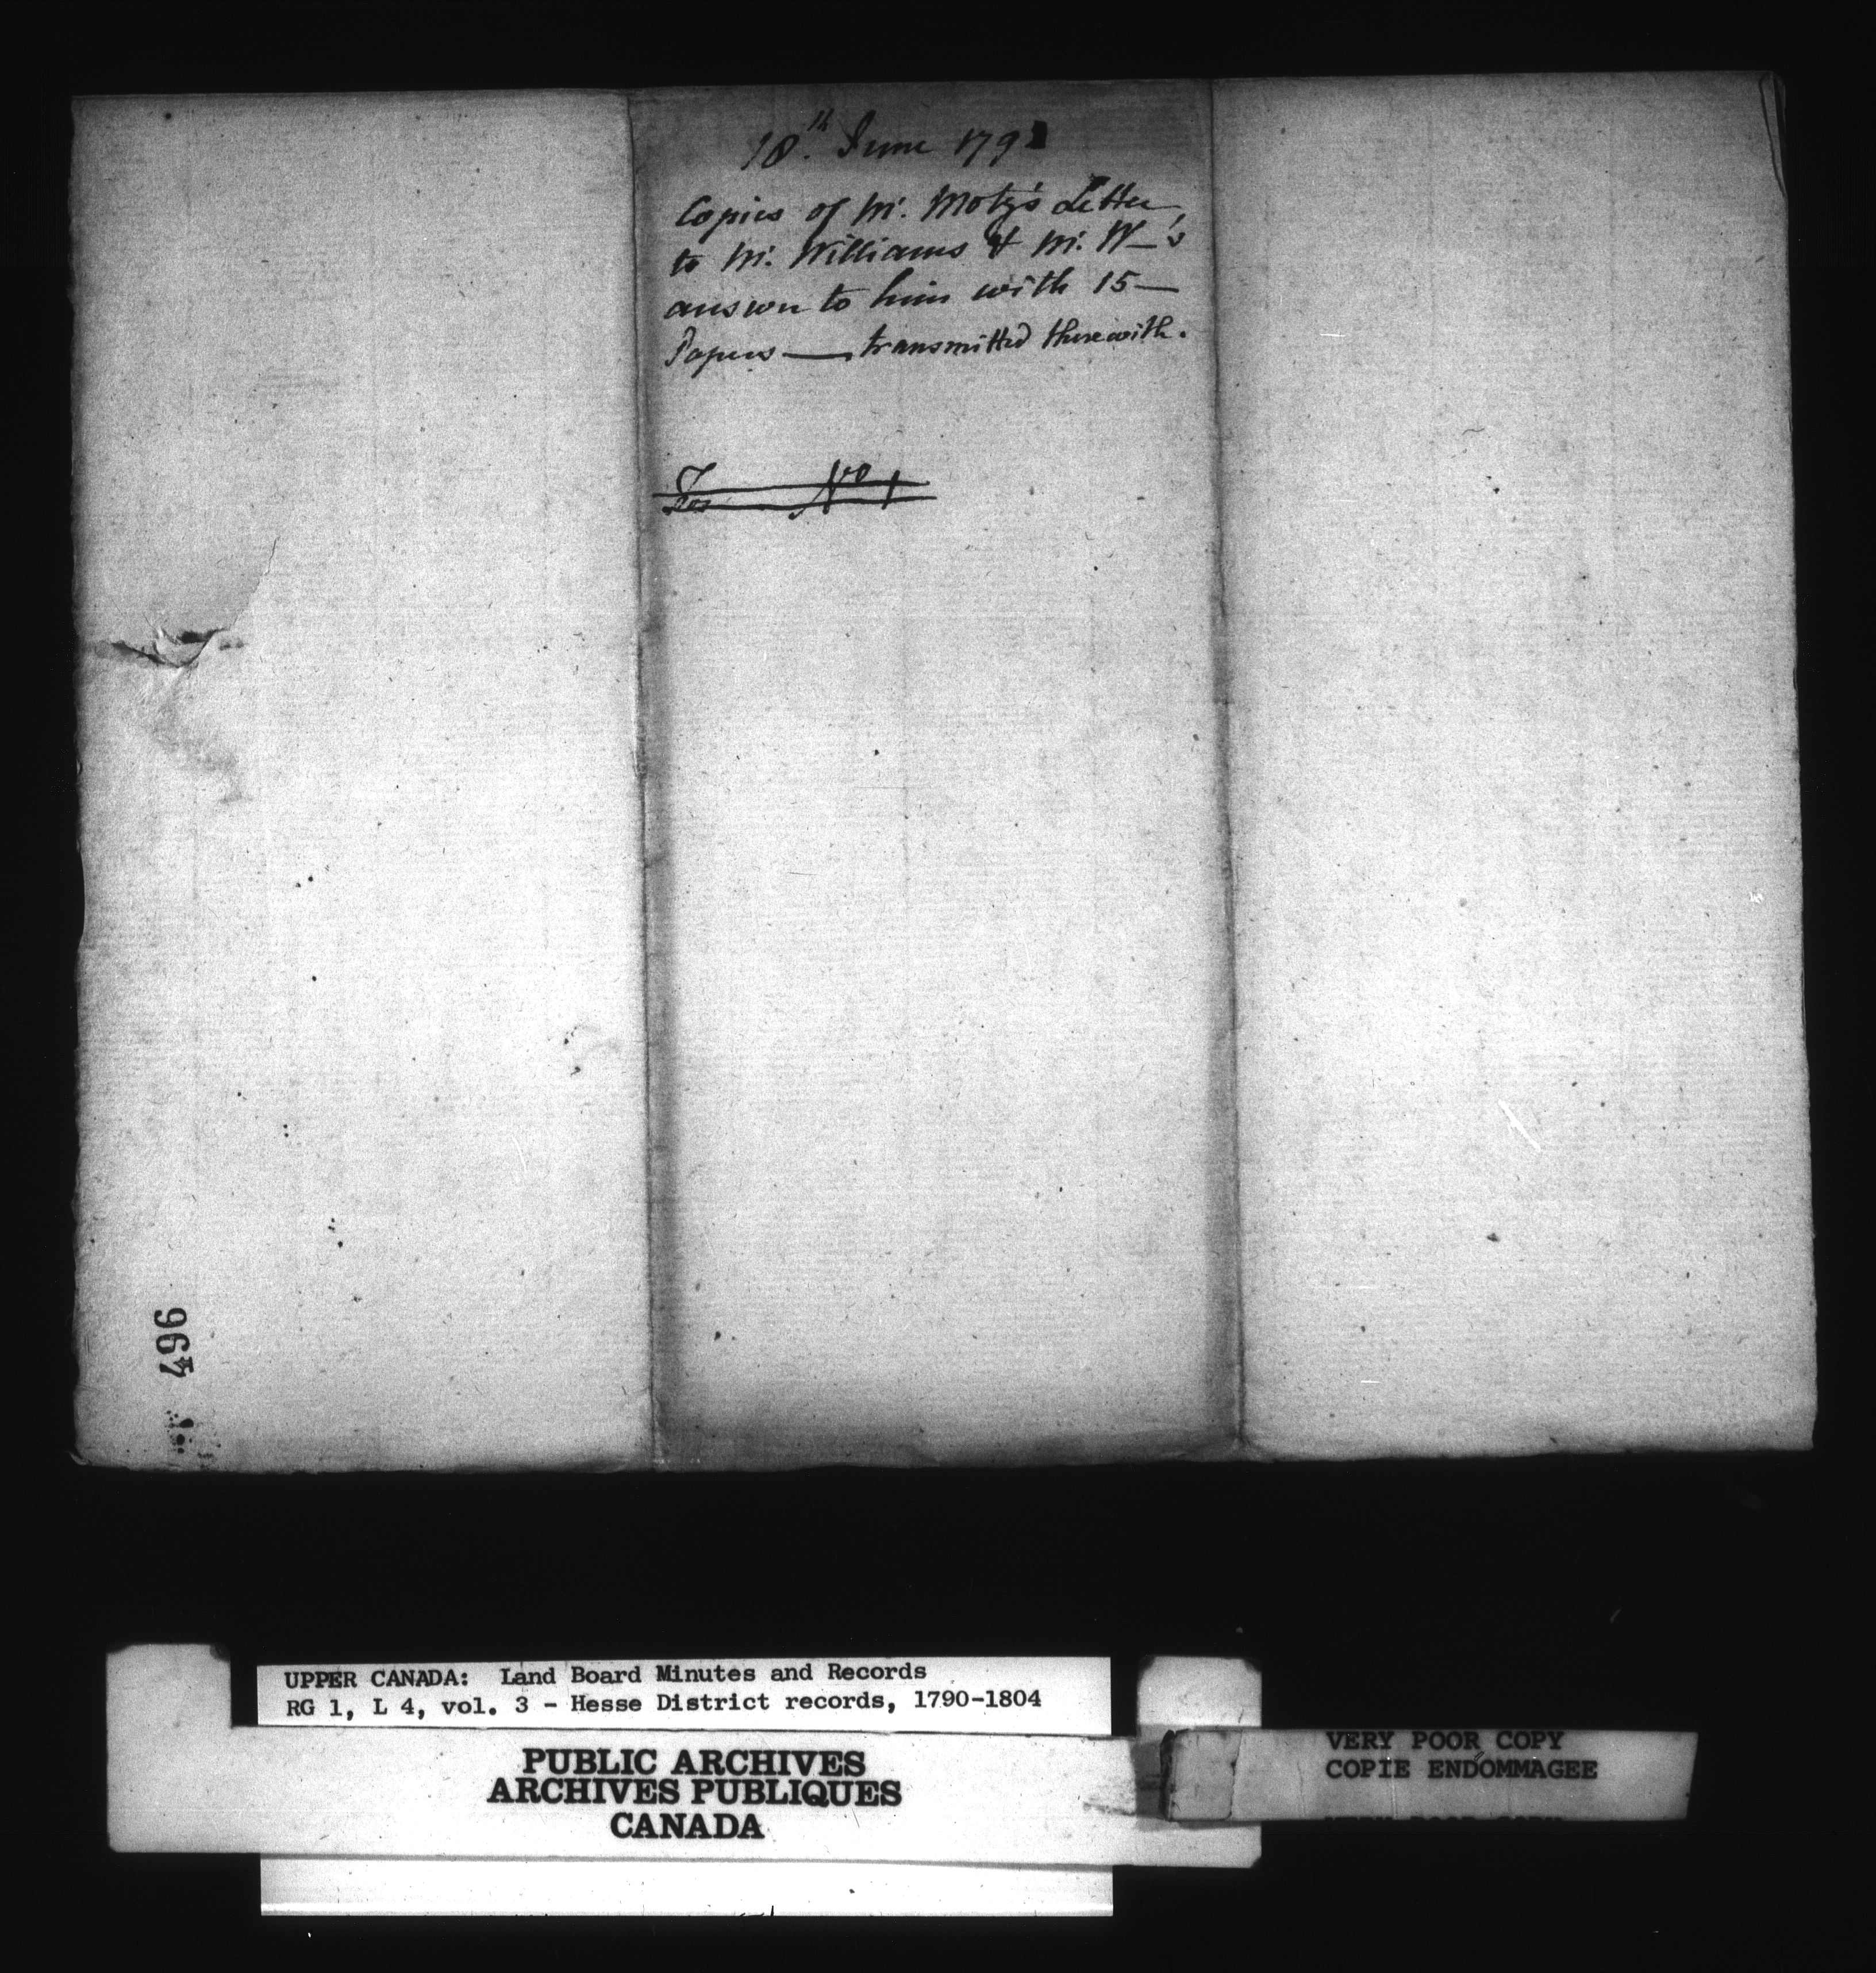 18th. June 179
Copies of Mr. Motz's Letter
to Mr. Williams & Mr. W—'s
answer to him with 15—
Papers — transmitted therewith.
No 1
496
UPPER CANADA: Land Board Minutes and Records
RG 1, L 4, vol. 3 - Hesse District records, 1790-1804
PUBLIC ARCHIVES
ARCHIVES PUBLIQUES
CANADA
VERY POOR COPY
COPIE ENDOMMAGEE